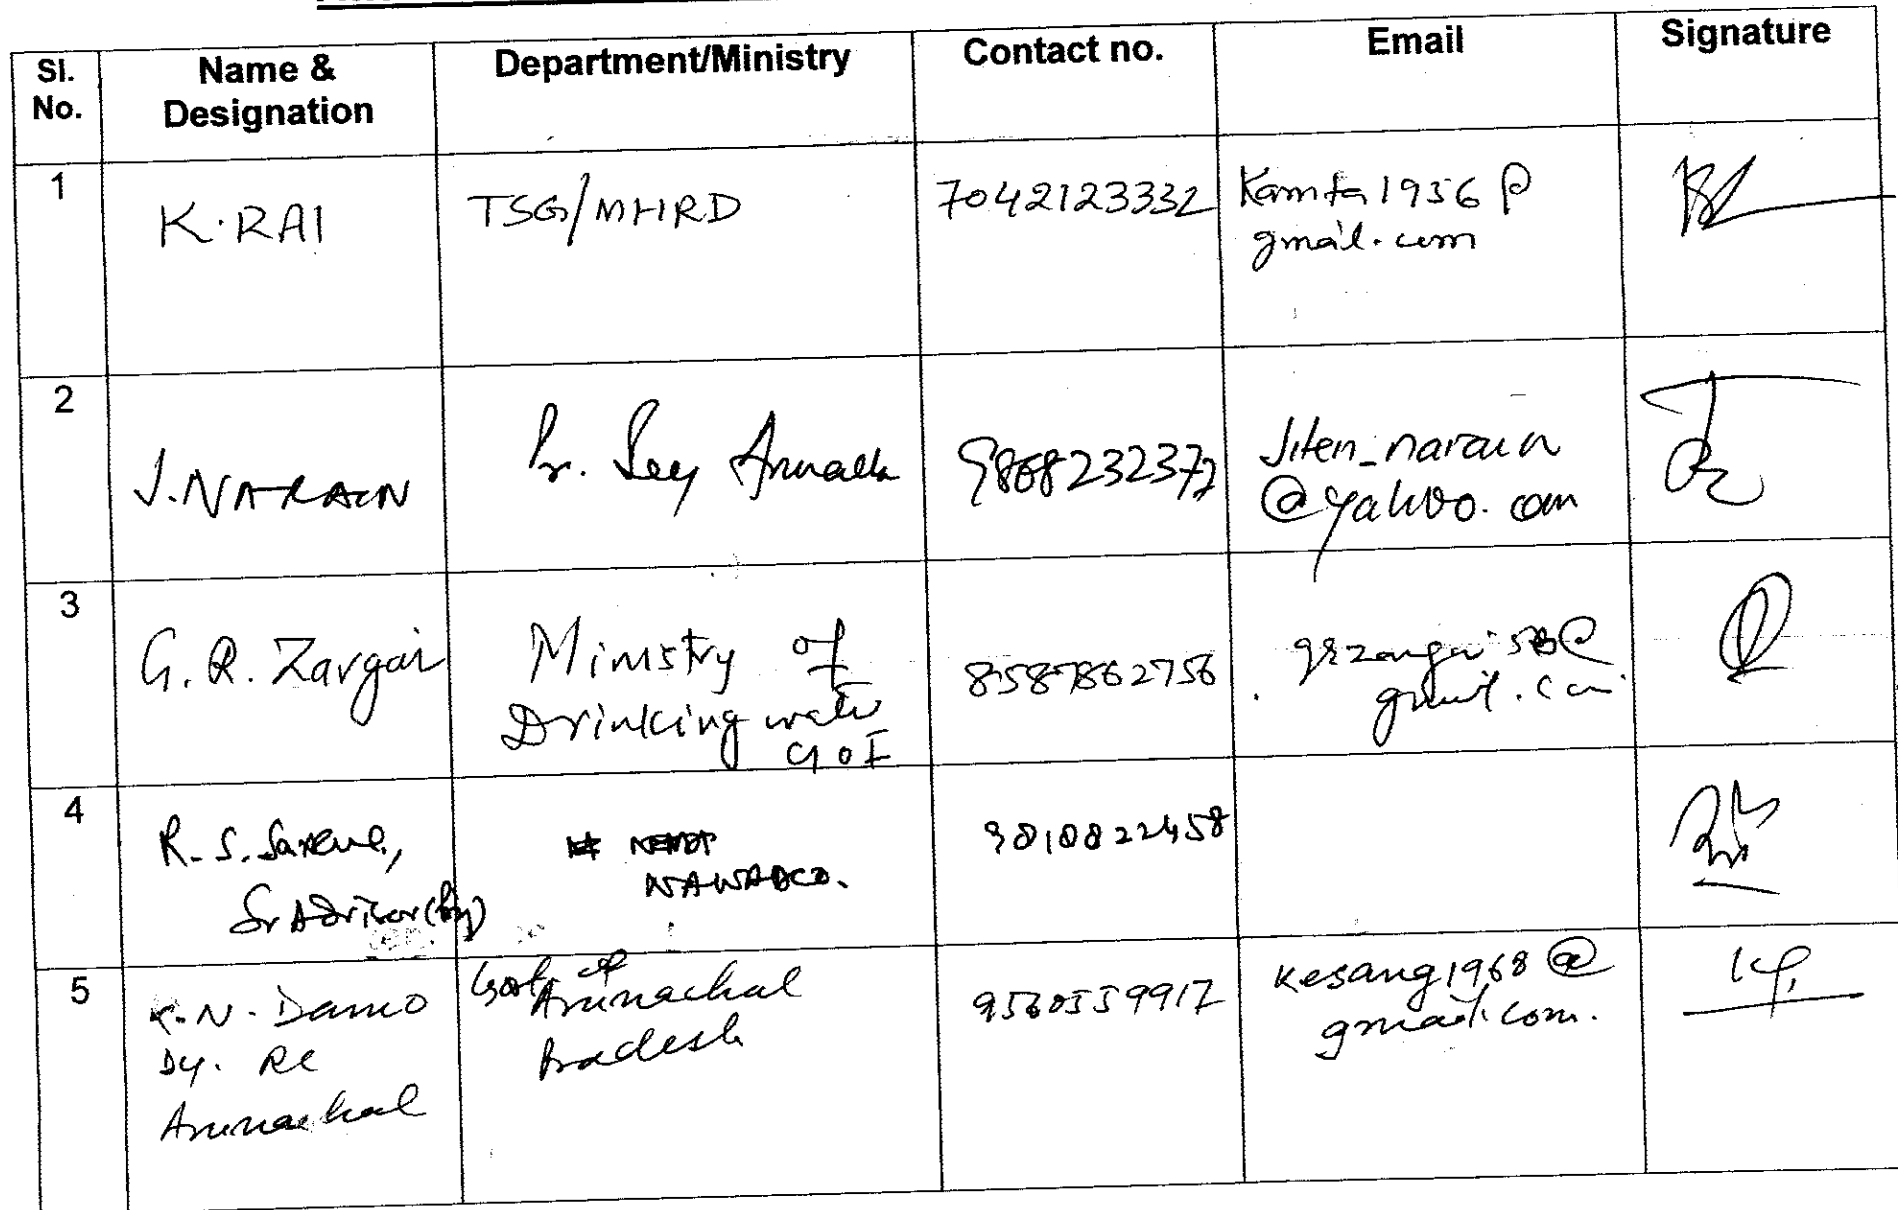 Sl. No. | Name & Designation | Department/Ministry | Contact no. | Email | Signature
1 | K. RAI | TSG/MHRD | 7042123332 | Kamta1956@ gmail.com
2 | J. NARAIN | Pr. Secy Arunachal | 9868232372 | Jiten_narain @yahoo.com
3 | G. R. Zargar | Ministry of Drinking water GOI | 8587862756 | grzargar58@ gmail.com
4 | R. S. Saxena, Sr Advisor | NAWADCO. | 9810822458
5 | K. N. Damo Dy. RC Arunachal | Govt. of Arunachal Pradesh | 9560559917 | kesang1968@ gmail.com.